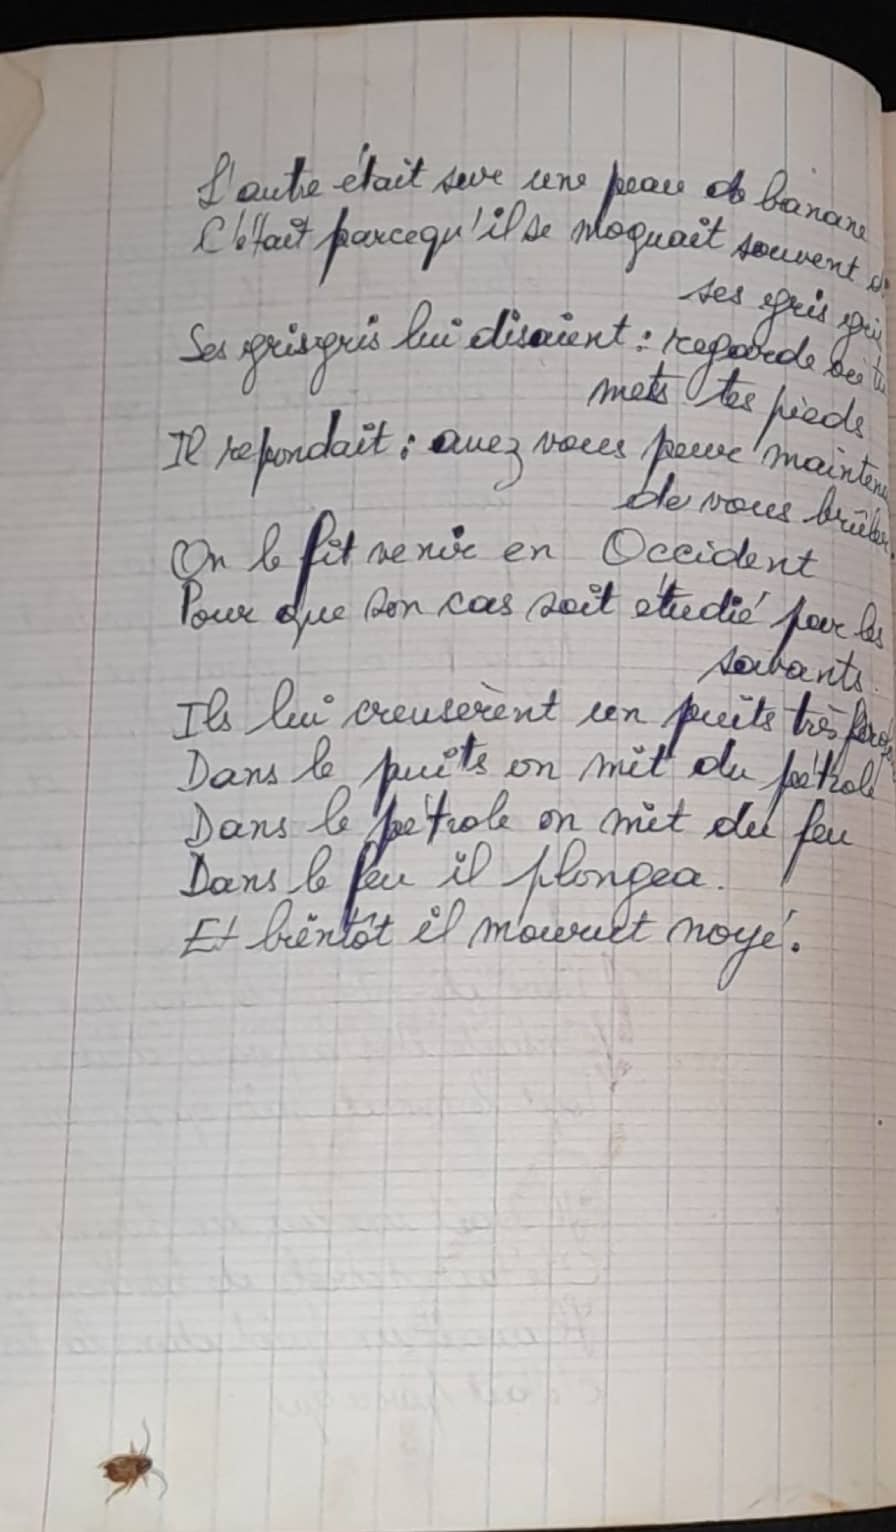 L'autre était sur une peau de banane
C'était parcequ'il se moquait souvent d
ses gris gris
Ses grisgris lui disaient : regarde où tu
mets tes pieds
Il repondait : avez vous peur mainten
de vous brûler
On le fit venir en Occident
Pour que son cas soit étudié par les
savants.
Ils lui creusèrent un puits très prof
Dans le puits on mit du pétrole
Dans le pétrole on mit du feu
Dans le feu il plongea.
Et bientôt il mourut noyé.